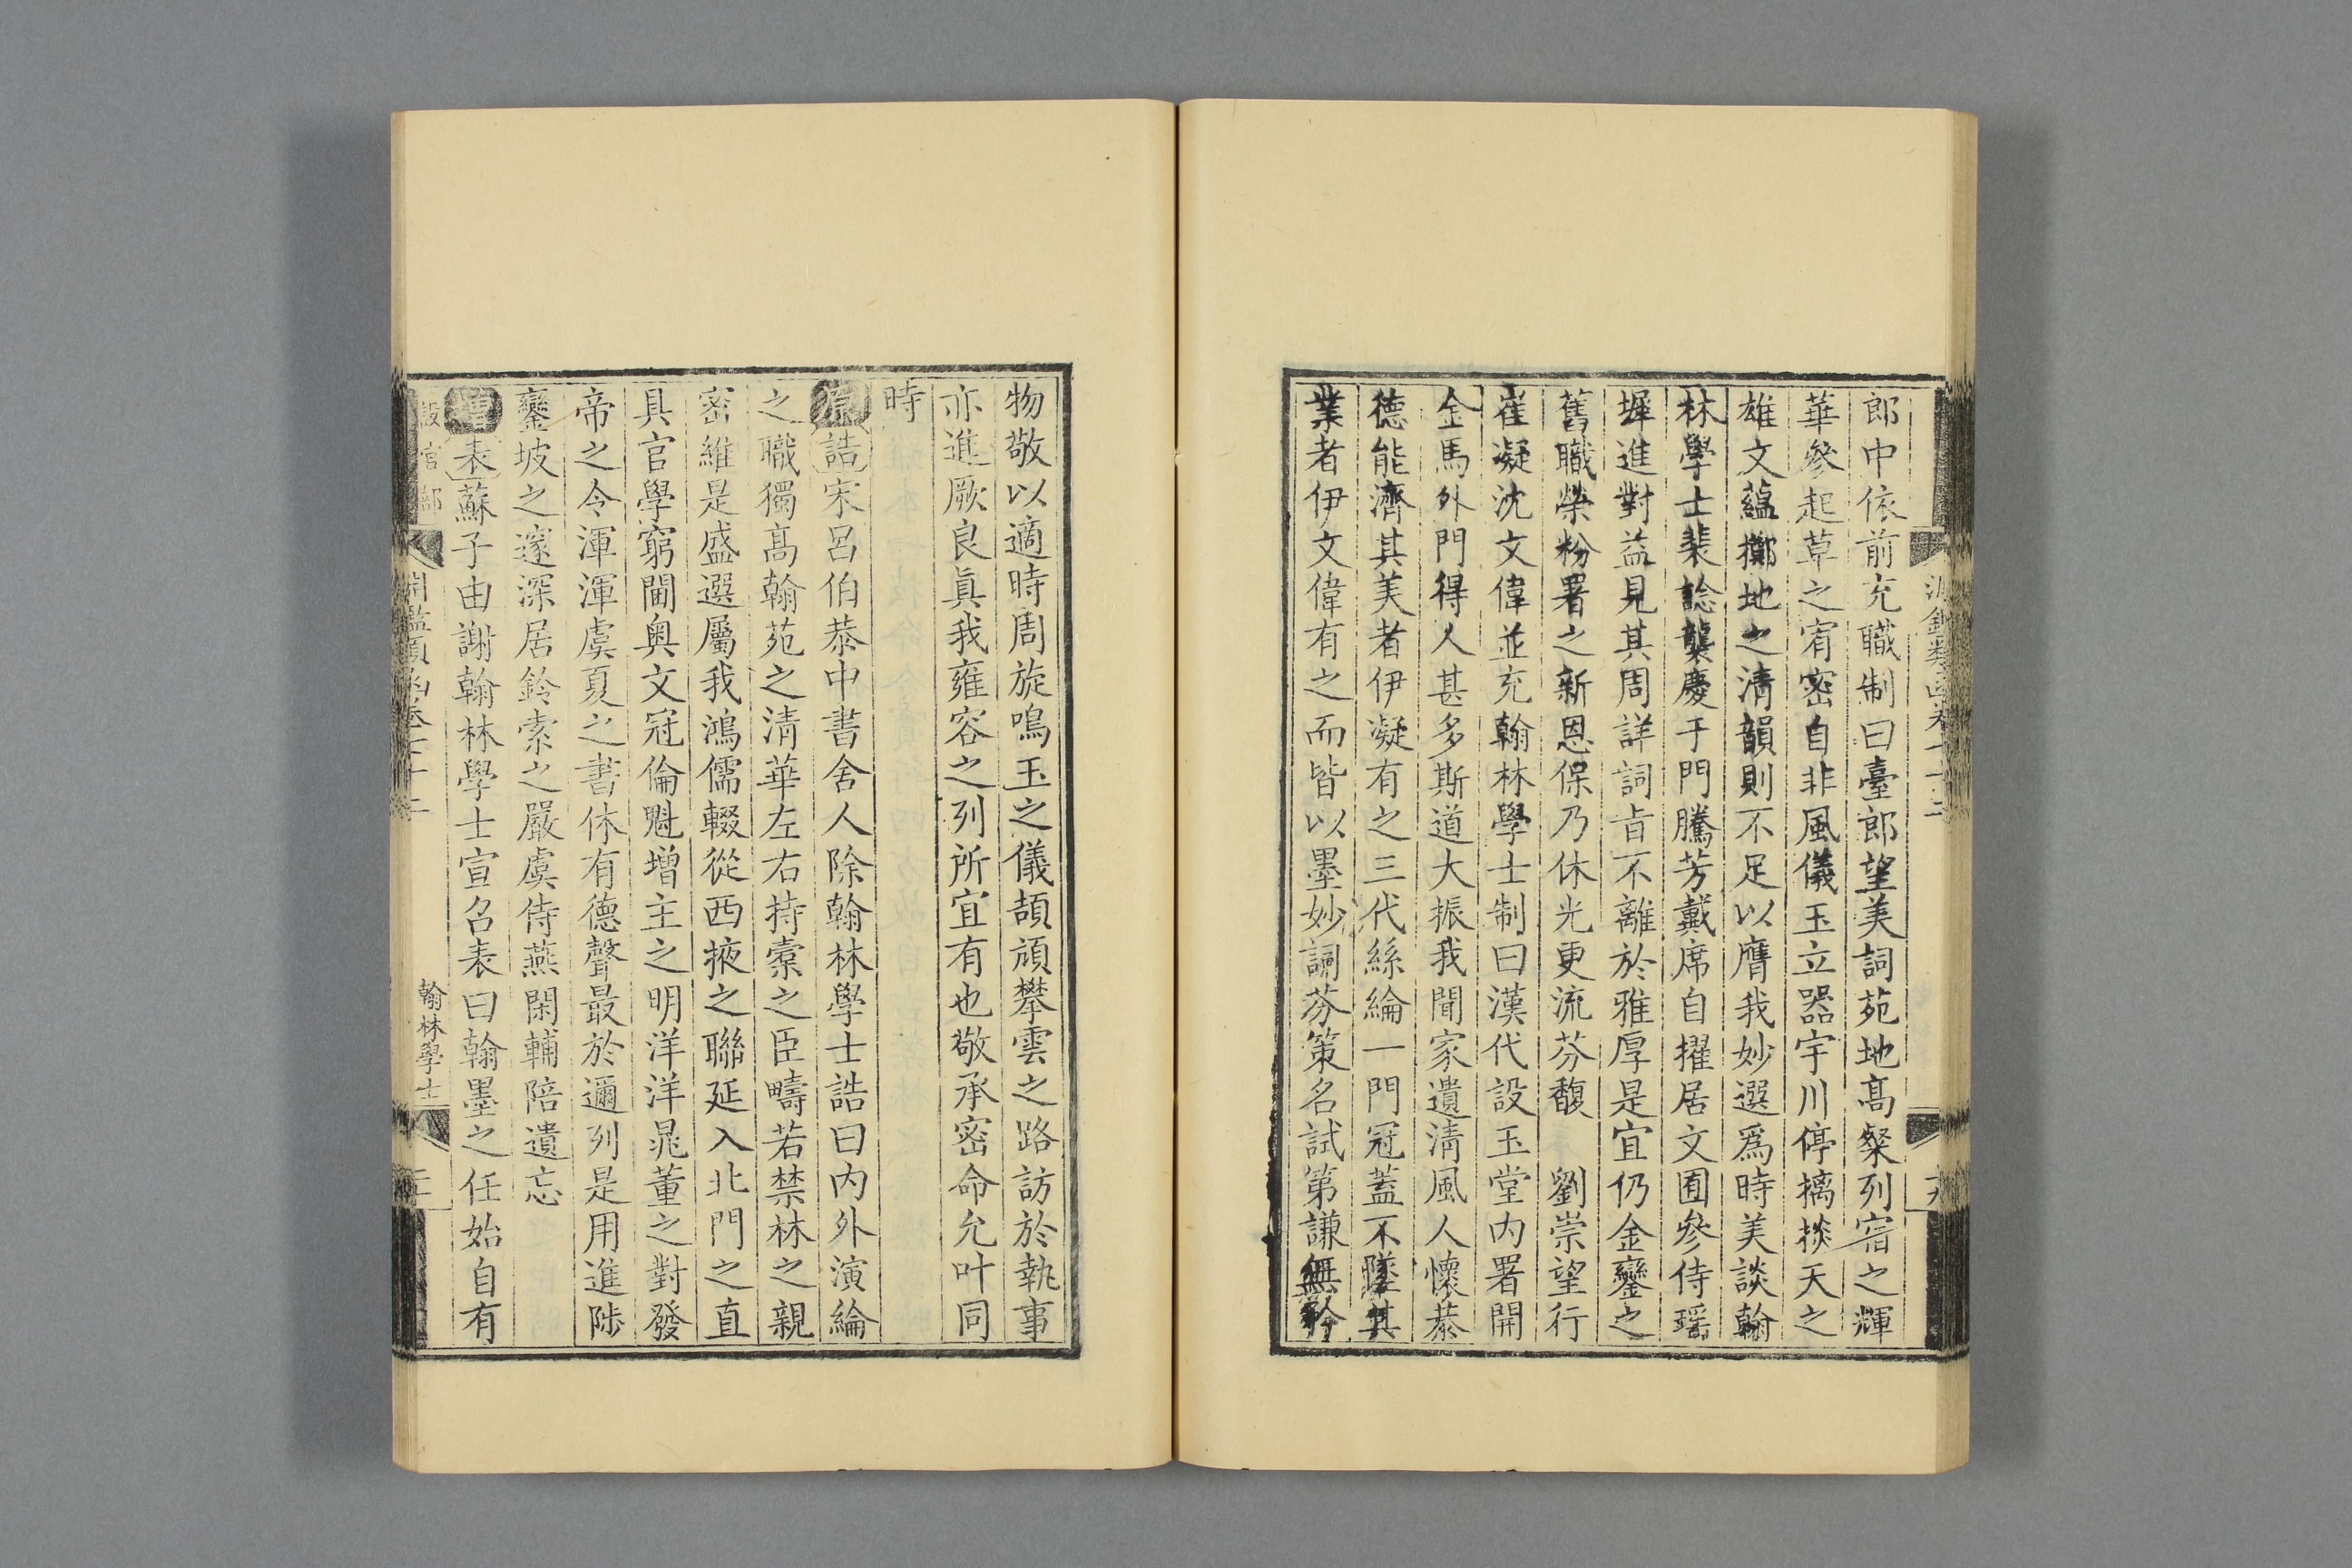 郎中依前充職制曰臺郎望美詞苑地髙粲列宿之輝
華參起草之宥密自非風儀玉立器宇川停摛掞天之
雄文蘊擲地之清韻則不足以膺我妙選爲時美談翰
林學士裴諗襲慶于門騰芳戴席自擢居文囿參侍瑶
墀進對益見其周詳詞旨不離於雅厚是宜仍金鑾之
舊職榮粉署之新恩保乃休光更流芬馥　劉崇望行
崔凝沈文偉並充翰林學士制曰漢代設玉堂內署開
金馬外門得人甚多斯道大振我聞家遺清風人懷恭
德能濟其美者伊凝有之三代絲綸一門冠蓋不墜其
業者伊文偉有之而皆以墨妙詞芬策名試第謙無矜
物敬以適時周旋鳴玉之儀頡頏攀雲之路訪於執事
亦進厥良眞我雍容之列所宜有也敬承密命允叶同
時
原誥宋呂伯恭中書舍人除翰林學士誥曰內外演綸
之職獨髙翰苑之清華左右持橐之臣疇若禁林之親
密維是盛選屬我鴻儒輟從西掖之聯延入北門之直
具官學窮閫奥文冠倫魁增主之明洋洋晁董之對發
帝之令渾渾虞夏之書休有德聲最於邇列是用進陟
鑾坡之邃深居鈴索之嚴虞侍燕閑輔陪遺忘
增表蘇子由謝翰林學士宣召表曰翰墨之任始自有
設官部
淵鑑類函卷七十二
翰林學士